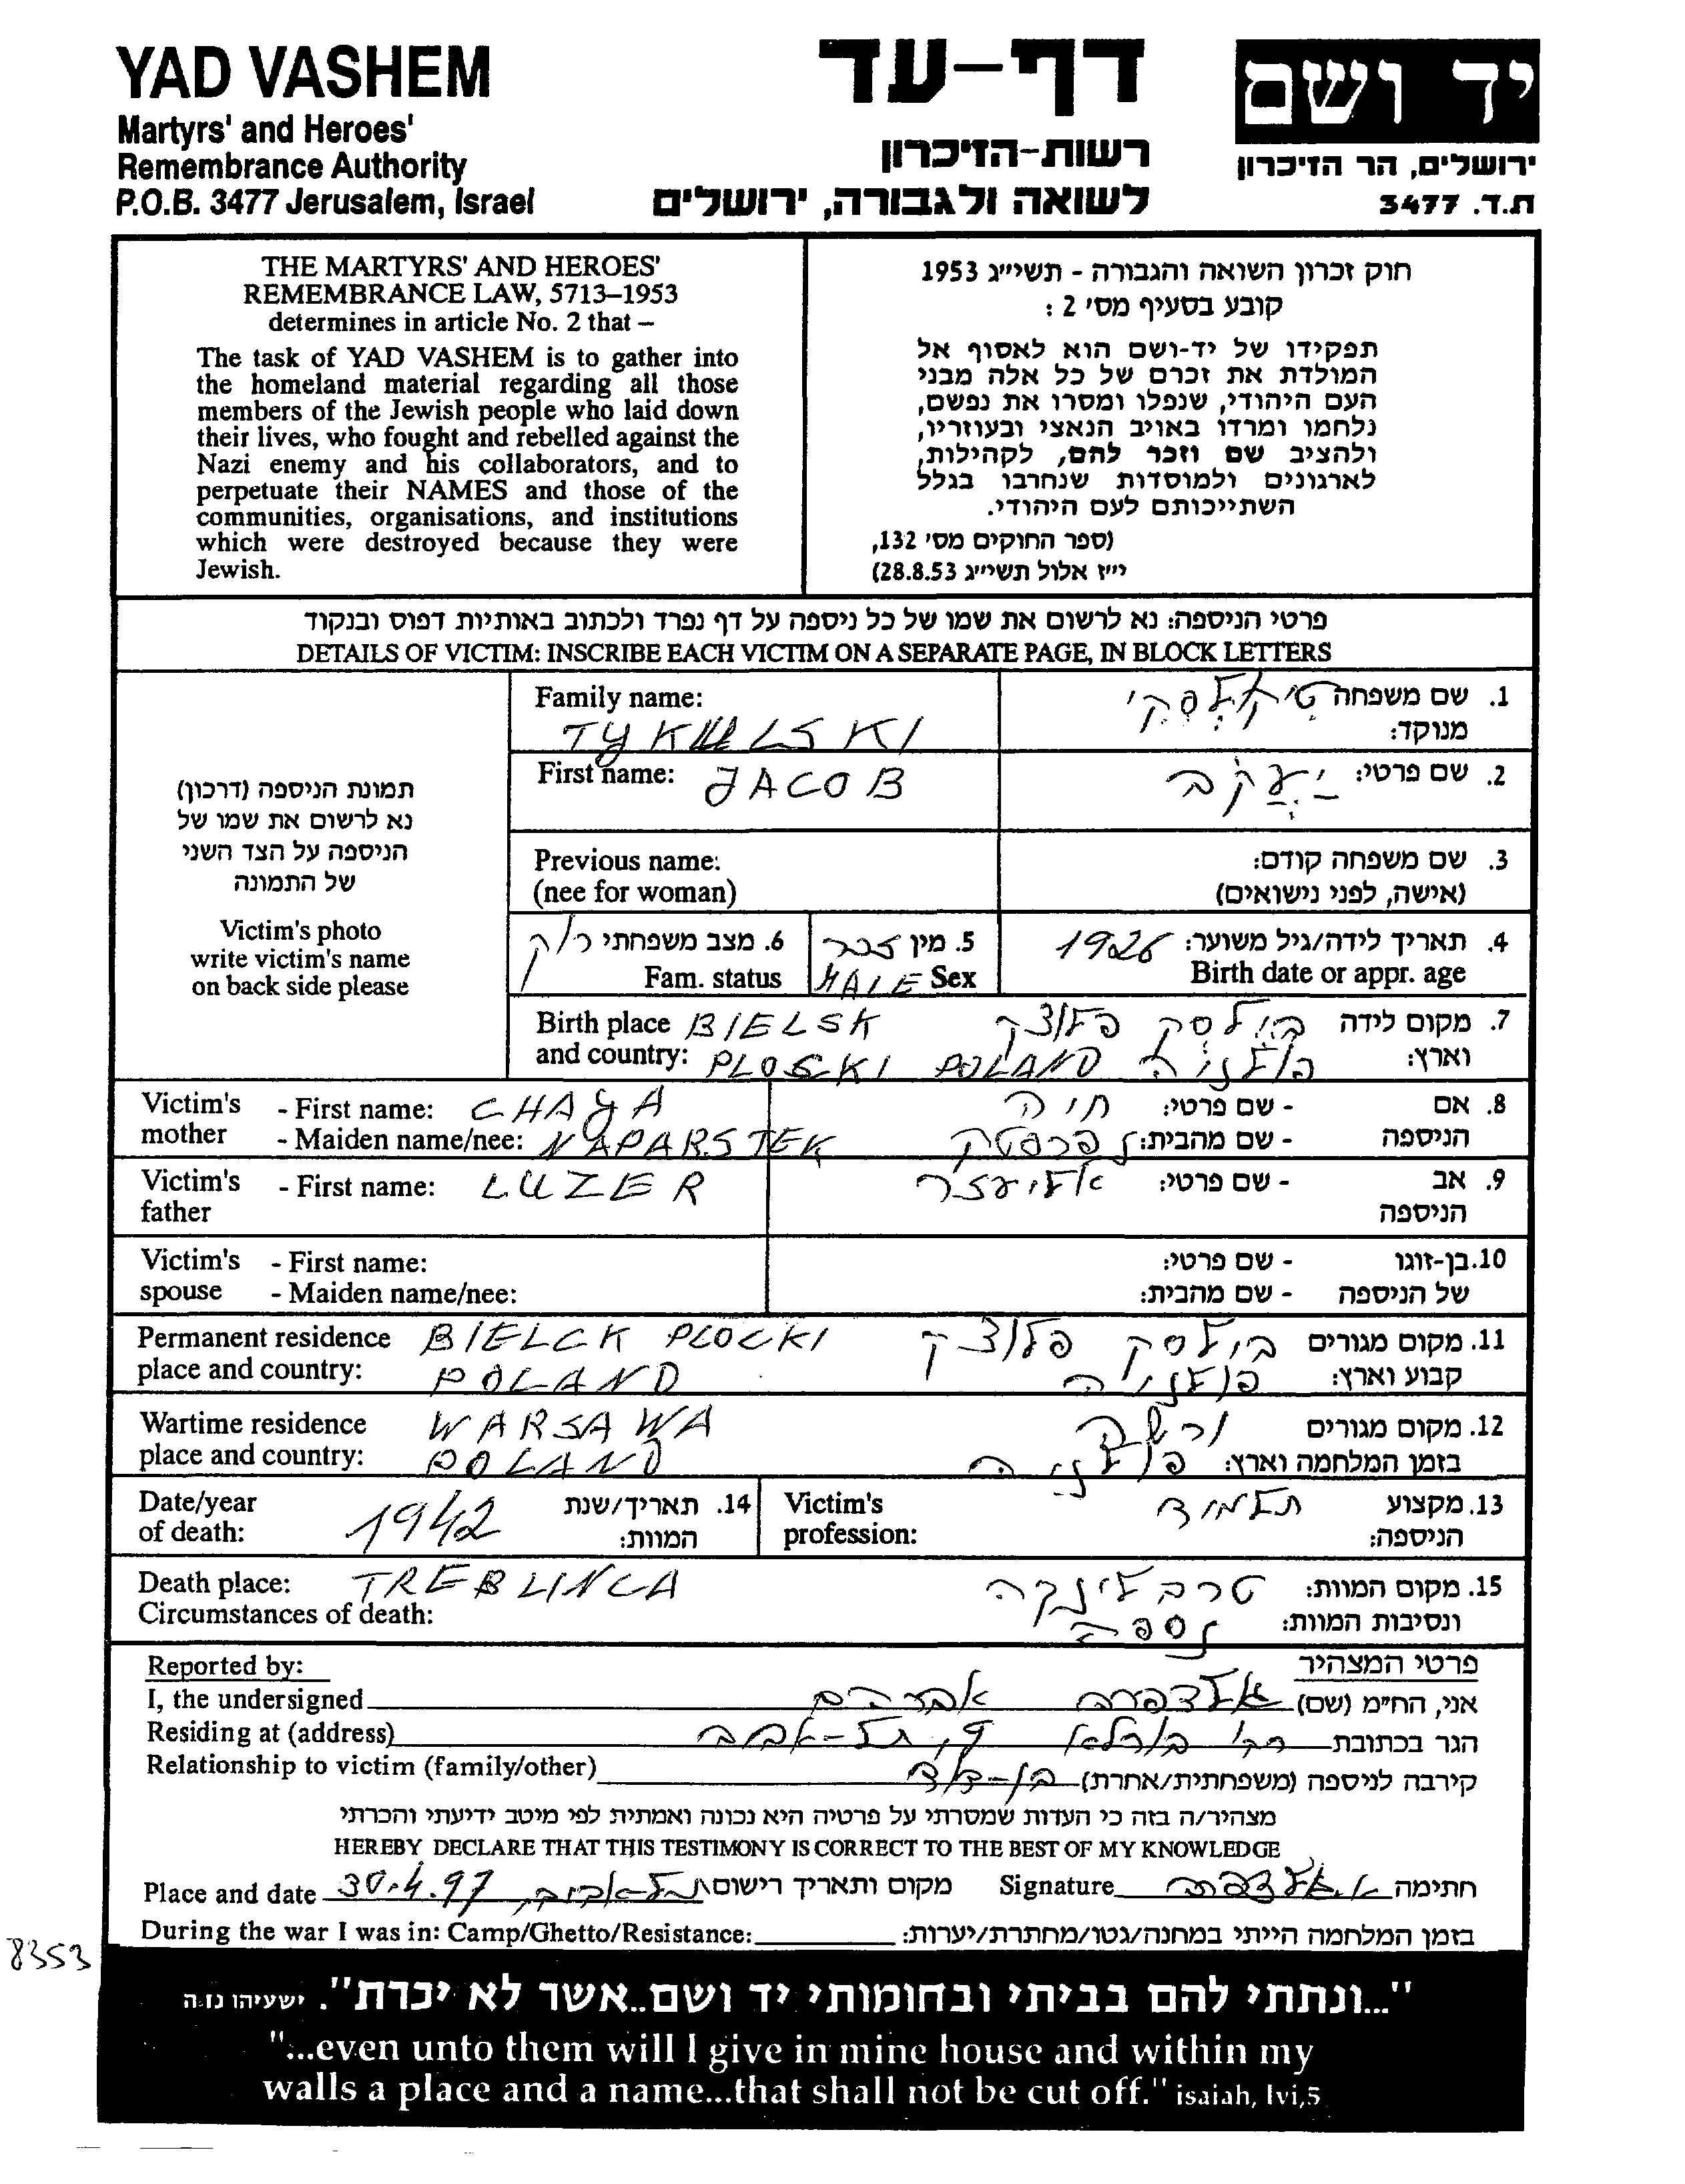 YAD VASHEM
Martyrs' and Heroes'
Remembrance Authority
P.O.B. 3477 Jerusalem, Israel
דף-עד
רשות-הזיכרון
לשואה ולגבורה, ירושלים
יד ושם
ירושלים, הר הזיכרון
ת.ד. 3477
THE MARTYRS' AND HEROES'
REMEMBRANCE LAW, 5713–1953
determines in article No. 2 that –
The task of YAD VASHEM is to gather into
the homeland material regarding all those
members of the Jewish people who laid down
their lives, who fought and rebelled against the
Nazi enemy and his collaborators, and to
perpetuate their NAMES and those of the
communities, organisations, and institutions
which were destroyed because they were
Jewish.
חוק זכרון השואה והגבורה - תשי״ג 1953
קובע בסעיף מס' 2 :
תפקידו של יד-ושם הוא לאסוף אל
המולדת את זכרם של כל אלה מבני
העם היהודי, שנפלו ומסרו את נפשם,
נלחמו ומרדו באויב הנאצי ובעוזריו,
ולהציב שם וזכר להם, לקהילות,
לארגונים ולמוסדות שנחרבו בגלל
השתייכותם לעם היהודי.
(ספר החוקים מס' 132,
י״ז אלול תשי״ג 28.8.53)
פרטי הניספה: נא לרשום את שמו של כל ניספה על דף נפרד ולכתוב באותיות דפוס ובנקוד
DETAILS OF VICTIM: INSCRIBE EACH VICTIM ON A SEPARATE PAGE, IN BLOCK LETTERS
תמונת הניספה (דרכון)
נא לרשום את שמו של
הניספה על הצד השני
של התמונה
Victim's photo
write victim's name
on back side please
Family name:
TYKULSKI
1. שם משפחה
מנוקד:
First name: JACOB
2. שם פרטי: יעקב
Previous name:
(nee for woman)
3. שם משפחה קודם:
(אישה, לפני נישואים)
4. תאריך לידה/גיל משוער: 1926
Birth date or appr. age
5. מין זכר
MALE Sex
6. מצב משפחתי רווק
Fam. status
Birth place BIELSK
and country: PLOSKI POLAND
7. מקום לידה בילסק פלוצק
וארץ: פולניה
Victim's mother - First name: CHAYA
- Maiden name/nee: NAPARSTEK
8. אם הניספה - שם פרטי: חיה
- שם מהבית: נפרסטק
Victim's father - First name: LUZER
9. אב הניספה - שם פרטי: אליעזר
Victim's spouse - First name:
- Maiden name/nee:
10. בן-זוגו של הניספה - שם פרטי:
- שם מהבית:
Permanent residence BIELCK PLOCKI
place and country: POLAND
11. מקום מגורים בילסק פלוצק
קבוע וארץ: פולניה
Wartime residence WARSAWA
place and country: POLAND
12. מקום מגורים ורשה
בזמן המלחמה וארץ: פולניה
Date/year
of death: 1942
14. תאריך/שנת
המוות:
Victim's
profession:
13. מקצוע תלמיד
הניספה:
Death place: TREBLINCA
Circumstances of death:
15. מקום המוות: טרבלינקה
ונסיבות המוות: נספה
Reported by:
פרטי המצהיר
I, the undersigned
אני, הח״מ (שם) אברהם
Residing at (address)
הגר בכתובת תל-אביב
Relationship to victim (family/other)
קירבה לניספה (משפחתית/אחרת) בן-דוד
מצהיר/ה בזה כי העדות שמסרתי על פרטיה היא נכונה ואמתית לפי מיטב ידיעתי והכרתי
HEREBY DECLARE THAT THIS TESTIMONY IS CORRECT TO THE BEST OF MY KNOWLEDGE
Place and date 30.4.97 תל-אביב, מקום ותאריך רישום
Signature חתימה
During the war I was in: Camp/Ghetto/Resistance: בזמן המלחמה הייתי במחנה/גטו/מחתרת/יערות:
8353
"...ונתתי להם בביתי ובחומותי יד ושם..אשר לא יכרת". ישעיהו נז.ה
"...even unto them will I give in mine house and within my
walls a place and a name...that shall not be cut off." isaiah, lvi,5